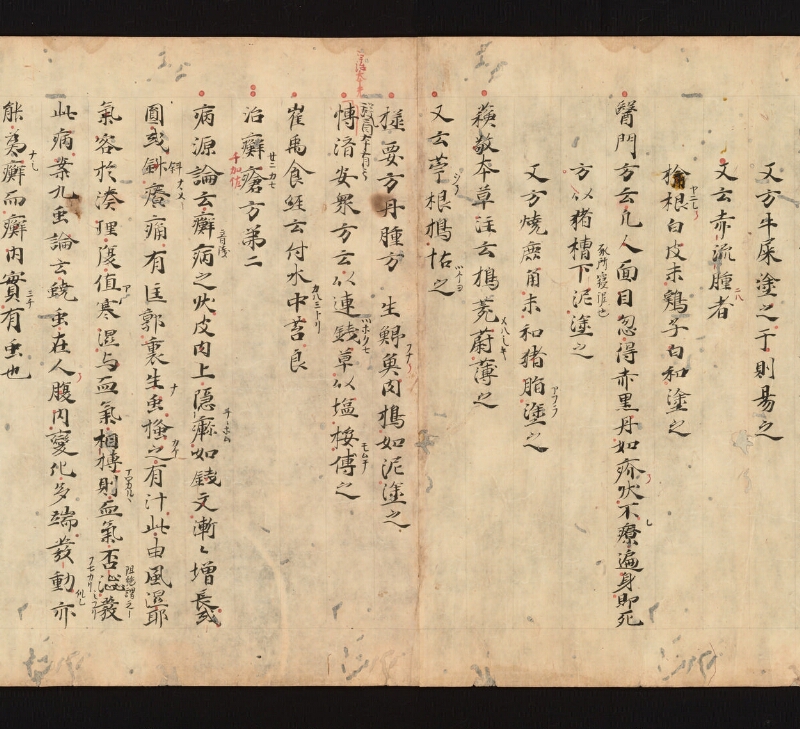 又方牛屎塗之干則易之
又云赤流腫者
榆根白皮末鷄子白和塗之
醫門方云凡人面目忽得赤黑丹如疥狀不療遍身即死
方以猪槽下泥塗之
又方燒鹿角末和猪脂塗之
蘇敬本草注云搗莞蔚薄之
又云苧根搗怗之
極要方丹腫方 生鯽魚肉搗如泥塗之
博済安衆方云以連錢草以塩挼傅之
崔禹食經云付水中苔良
治癬瘡方苐二
病源論云癬病之狀皮肉上隱𤺋如錢文漸〻增長或
圓或斜癢痛有匡郭裏生虫搔之有汁此由風濕耶
氣客於湊理復值寒濕与血氣相搏則血氣否澁發
此病業九虫論云蟯虫在人腹内變化多端發動亦
能爲癬而癬内實有虫也